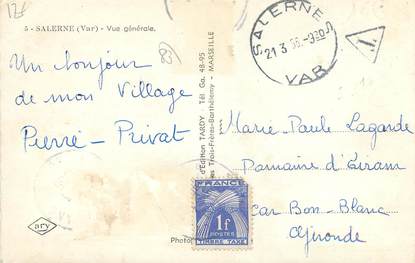 5 - SALERNE (Var) - Vue générale.
(83)
Un bonjour
de mon Village
Pierre-Privat
d'Edition TARDY Tél Ga. 48-95
es Trois-Frères-Barthélemy - MARSEILLE
SALERNE
21 3
VAR
T
Marie-Paule Lagarde
Domaine d'
car Bon-Blanc
Gironde
FRANCE
1F
POSTES
TIMBRE TAXE
ary
Photo